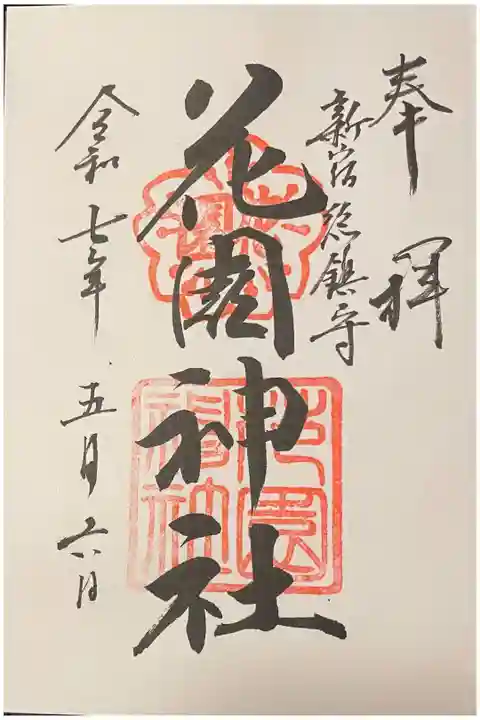 奉拝
新宿総鎮守
花園神社
花園
花園神社
令和七年 五月六日